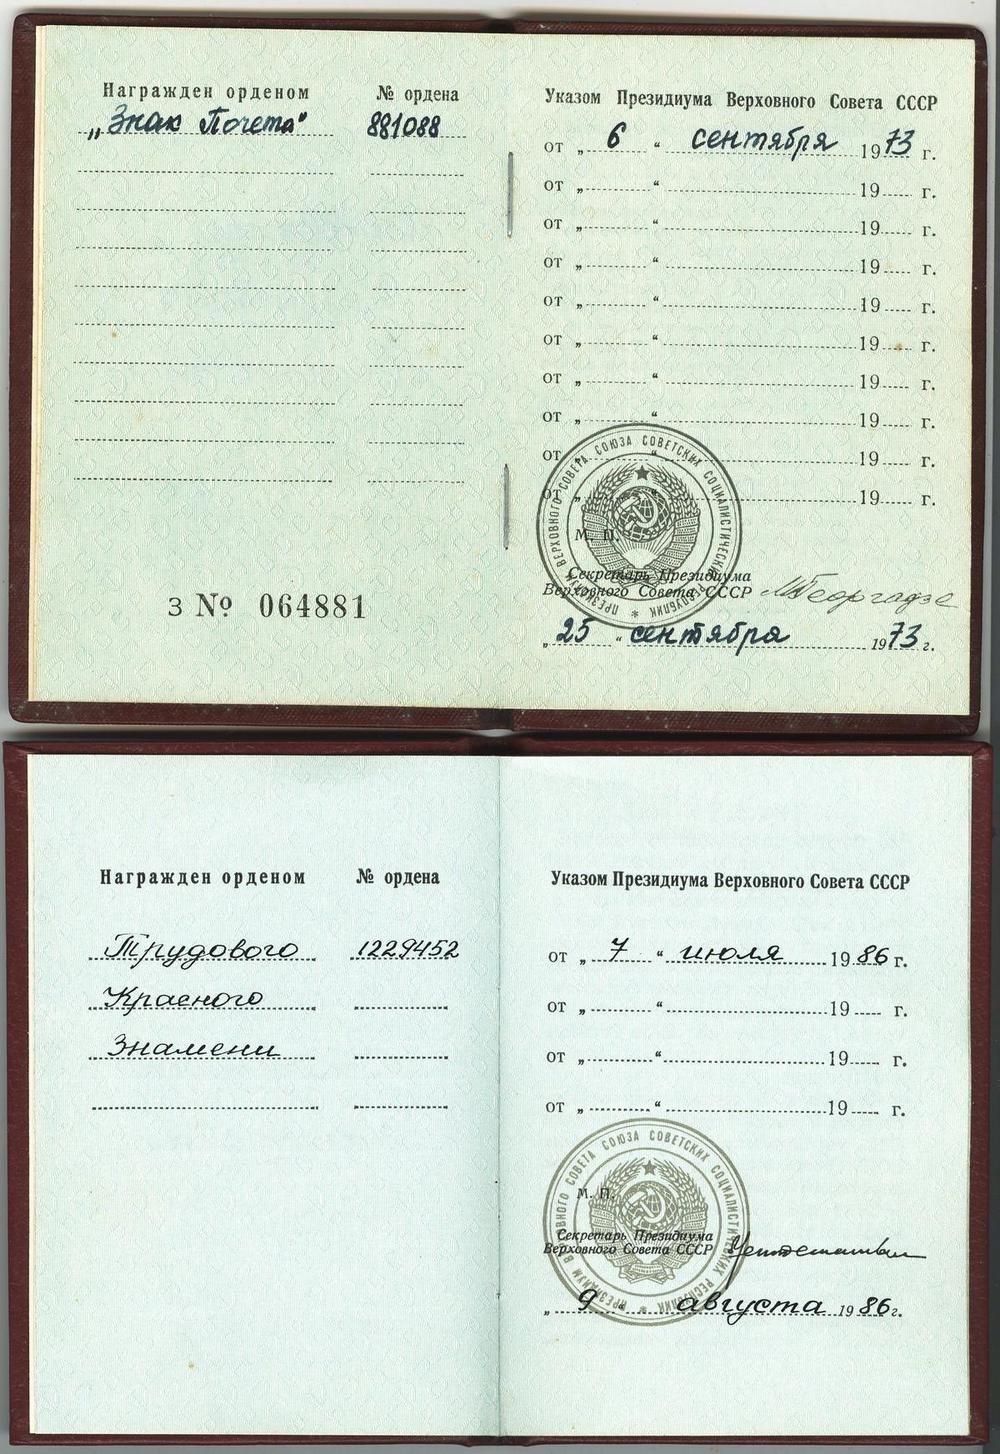 Награжден орденом № ордена
„Знак Почета“ 881088
З № 064881
Указом Президиума Верховного Совета СССР
от „ 6 “ сентября 1973 г.
от „ “ 19 г.
от „ “ 19 г.
от „ “ 19 г.
от „ “ 19 г.
от „ “ 19 г.
от „ “ 19 г.
от „ “ 19 г.
от „ “ 19 г.
от „ “ 19 г.
ПРЕЗИДИУМ ВЕРХОВНОГО СОВЕТА СОЮЗА СОВЕТСКИХ СОЦИАЛИСТИЧЕСКИХ РЕСПУБЛИК *
М. П.
Секретарь Президиума
Верховного Совета СССР МГеоргадзе
„ 25 “ сентября 1973 г.
Награжден орденом № ордена
Трудового 1229452
Красного
Знамени
Указом Президиума Верховного Совета СССР
от „ 7 “ июля 1986 г.
от „ “ 19 г.
от „ “ 19 г.
от „ “ 19 г.
ПРЕЗИДИУМ ВЕРХОВНОГО СОВЕТА СОЮЗА СОВЕТСКИХ СОЦИАЛИСТИЧЕСКИХ РЕСПУБЛИК *
М. П.
Секретарь Президиума
Верховного Совета СССР
„ 9 “ августа 1986 г.